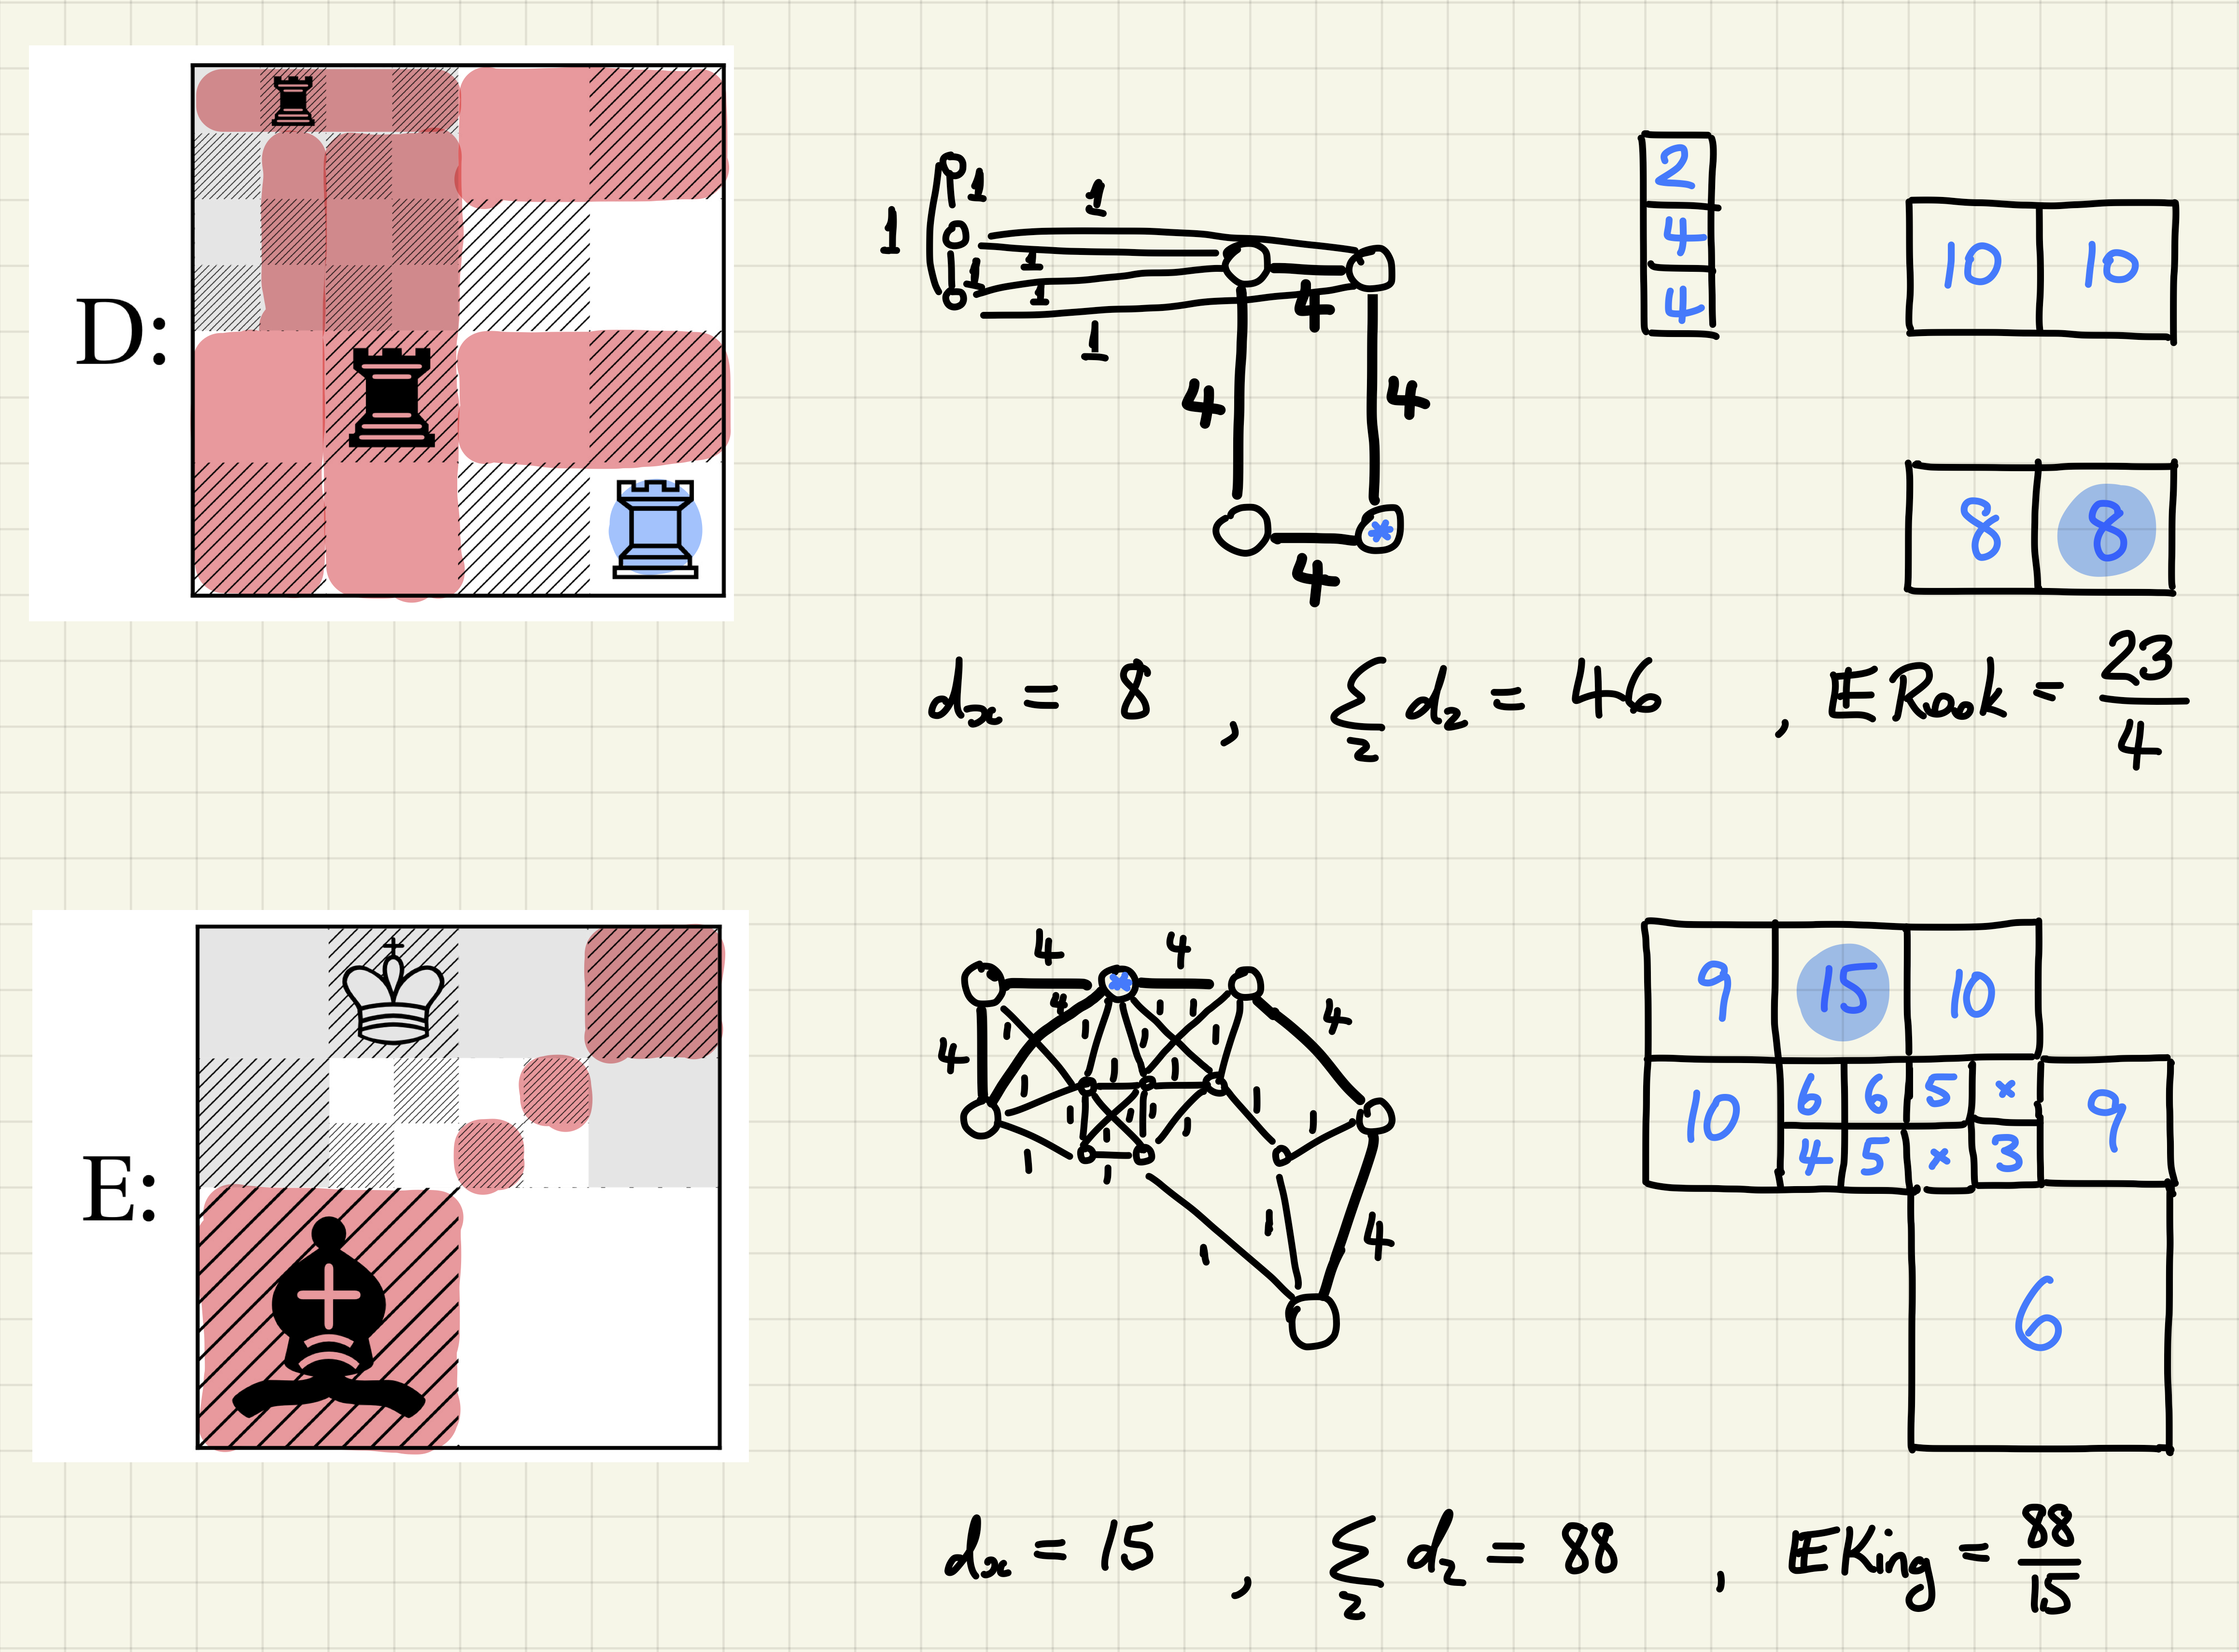 D:
1 1 1 1 1 1 1 4 4 4 4
2
4
4
10 10
8 8
dx = 8 , Σz dz = 46 , E Rook = 23/4
E:
4 4 4 4 4 4
1 1 1 1 1 1 1 1 1 1 1 1 1 1 1 1 1 1 1 1
9 15 10
10 6 6 5 × 9
4 5 × 3
6
dx = 15 , Σz dz = 88 , E King = 88/15